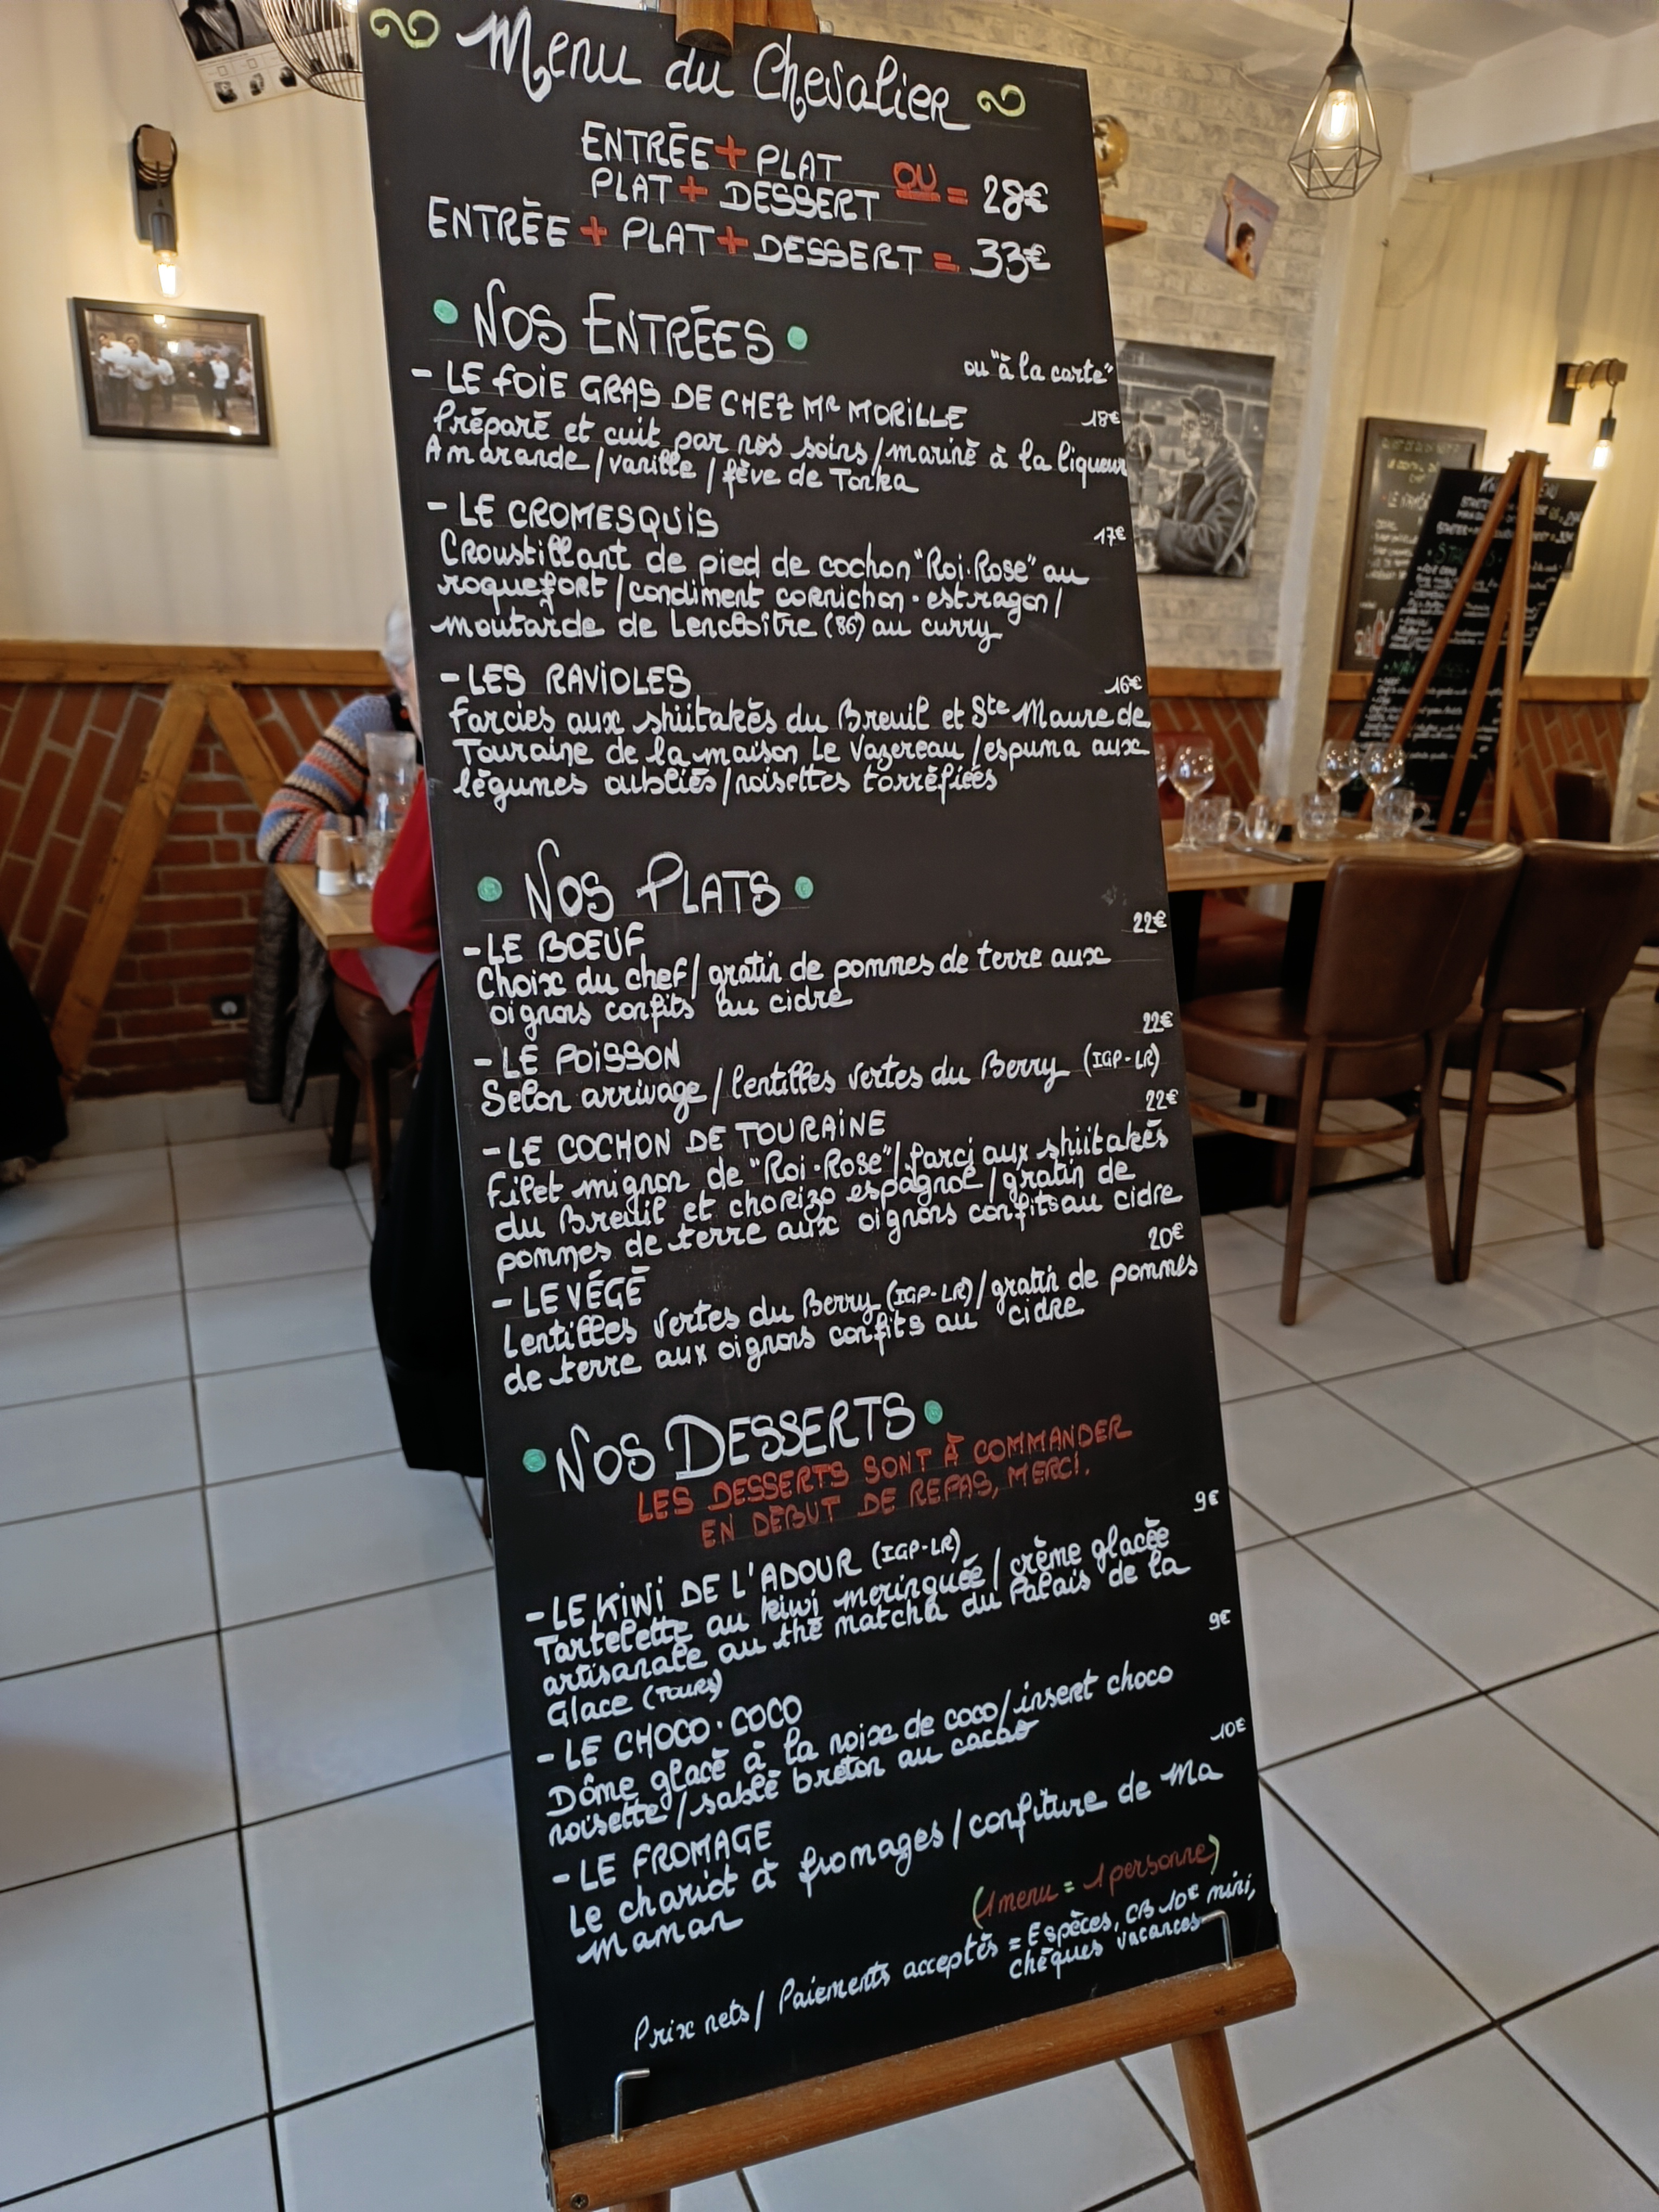 Menu du Chevalier
ENTRÉE + PLAT
OU = 28€
PLAT + DESSERT
ENTRÉE + PLAT + DESSERT = 33€
• NOS ENTRÉES •
ou "à la carte"
- LE FOIE GRAS DE CHEZ MR MORILLE 18€
Préparé et cuit par nos soins / mariné à la liqueur
Amarande / vanille / fève de Tonka
- LE CROMESQUIS 17€
Croustillant de pied de cochon "Roi-Rose" au
roquefort / condiment cornichon-estragon /
moutarde de Lencloître (86) au curry
- LES RAVIOLES 16€
farcies aux shiitakés du Breuil et Ste Maure de
Touraine de la maison Le Vazereau / espuma aux
légumes oubliés / noisettes torréfiées
• NOS PLATS •
- LE BOEUF 22€
Choix du chef / gratin de pommes de terre aux
oignons confits au cidre
- LE POISSON 22€
Selon arrivage / lentilles vertes du Berry (IGP-LR)
- LE COCHON DE TOURAINE 22€
Filet mignon de "Roi-Rose" / farci aux shiitakés
du Breuil et chorizo espagnol / gratin de
pommes de terre aux oignons confits au cidre
- LE VÉGÉ 20€
Lentilles vertes du Berry (IGP-LR) / gratin de pommes
de terre aux oignons confits au cidre
• NOS DESSERTS •
LES DESSERTS SONT À COMMANDER
EN DEBUT DE REPAS, MERCI.
- LE KIWI DE L'ADOUR (IGP-LR) 9€
Tartelette au kiwi meringuée / crème glacée
artisanale au thé matcha du Palais de la
Glace (TOURS)
- LE CHOCO-COCO 9€
Dôme glacé à la noix de coco / insert choco
noisette / sablé breton au cacao
- LE FROMAGE 10€
Le chariot à fromages / confiture de Ma
Maman
(1 menu = 1 personne)
Prix nets / Paiements acceptés = Espèces, CB 10€ mini,
chèques vacances